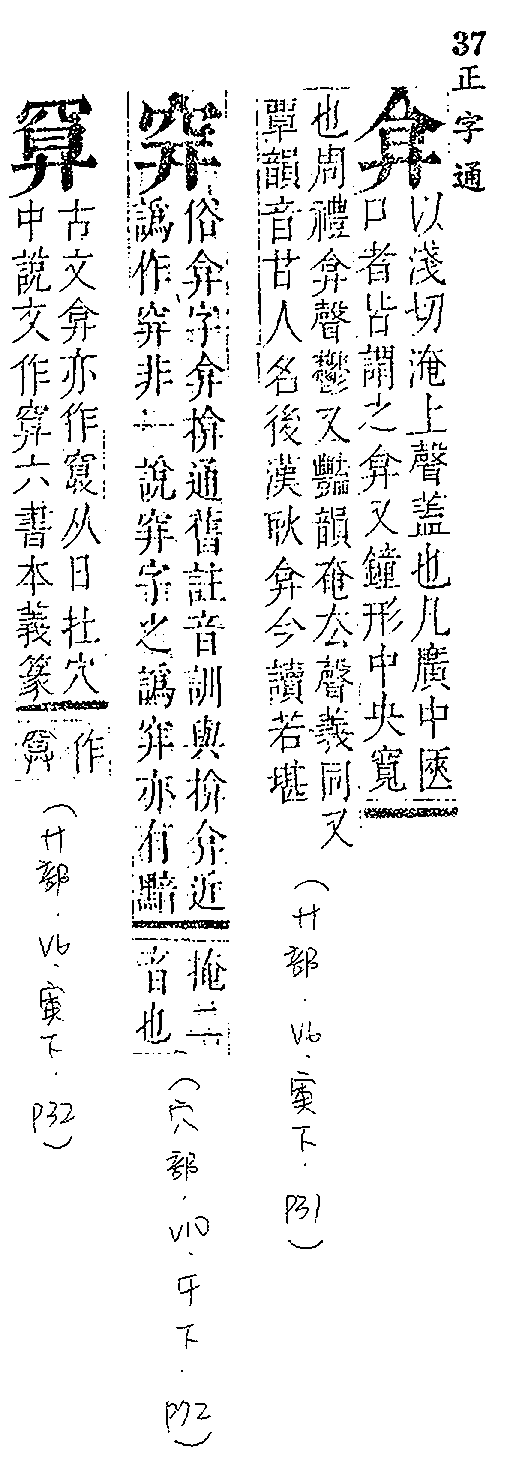 37
正字通
弇
以淺切淹上聲蓋也凡廣中陿
口者皆謂之弇又鐘形中央寬
也周禮弇聲鬱又豔韻奄去聲義同又
覃韻音甘人名後漢耿弇今讀若堪
(廾部.V6.寅下.P31)
穽
俗弇字弇揜通舊註音訓與揜弇近
譌作穽非一說穽字之譌穽亦有黯
掩二
音也
(穴部.V10.午下.P72)
古文弇亦作从日在穴
中說文作六書本義篆
作
(廾部.V6.寅下.P32)